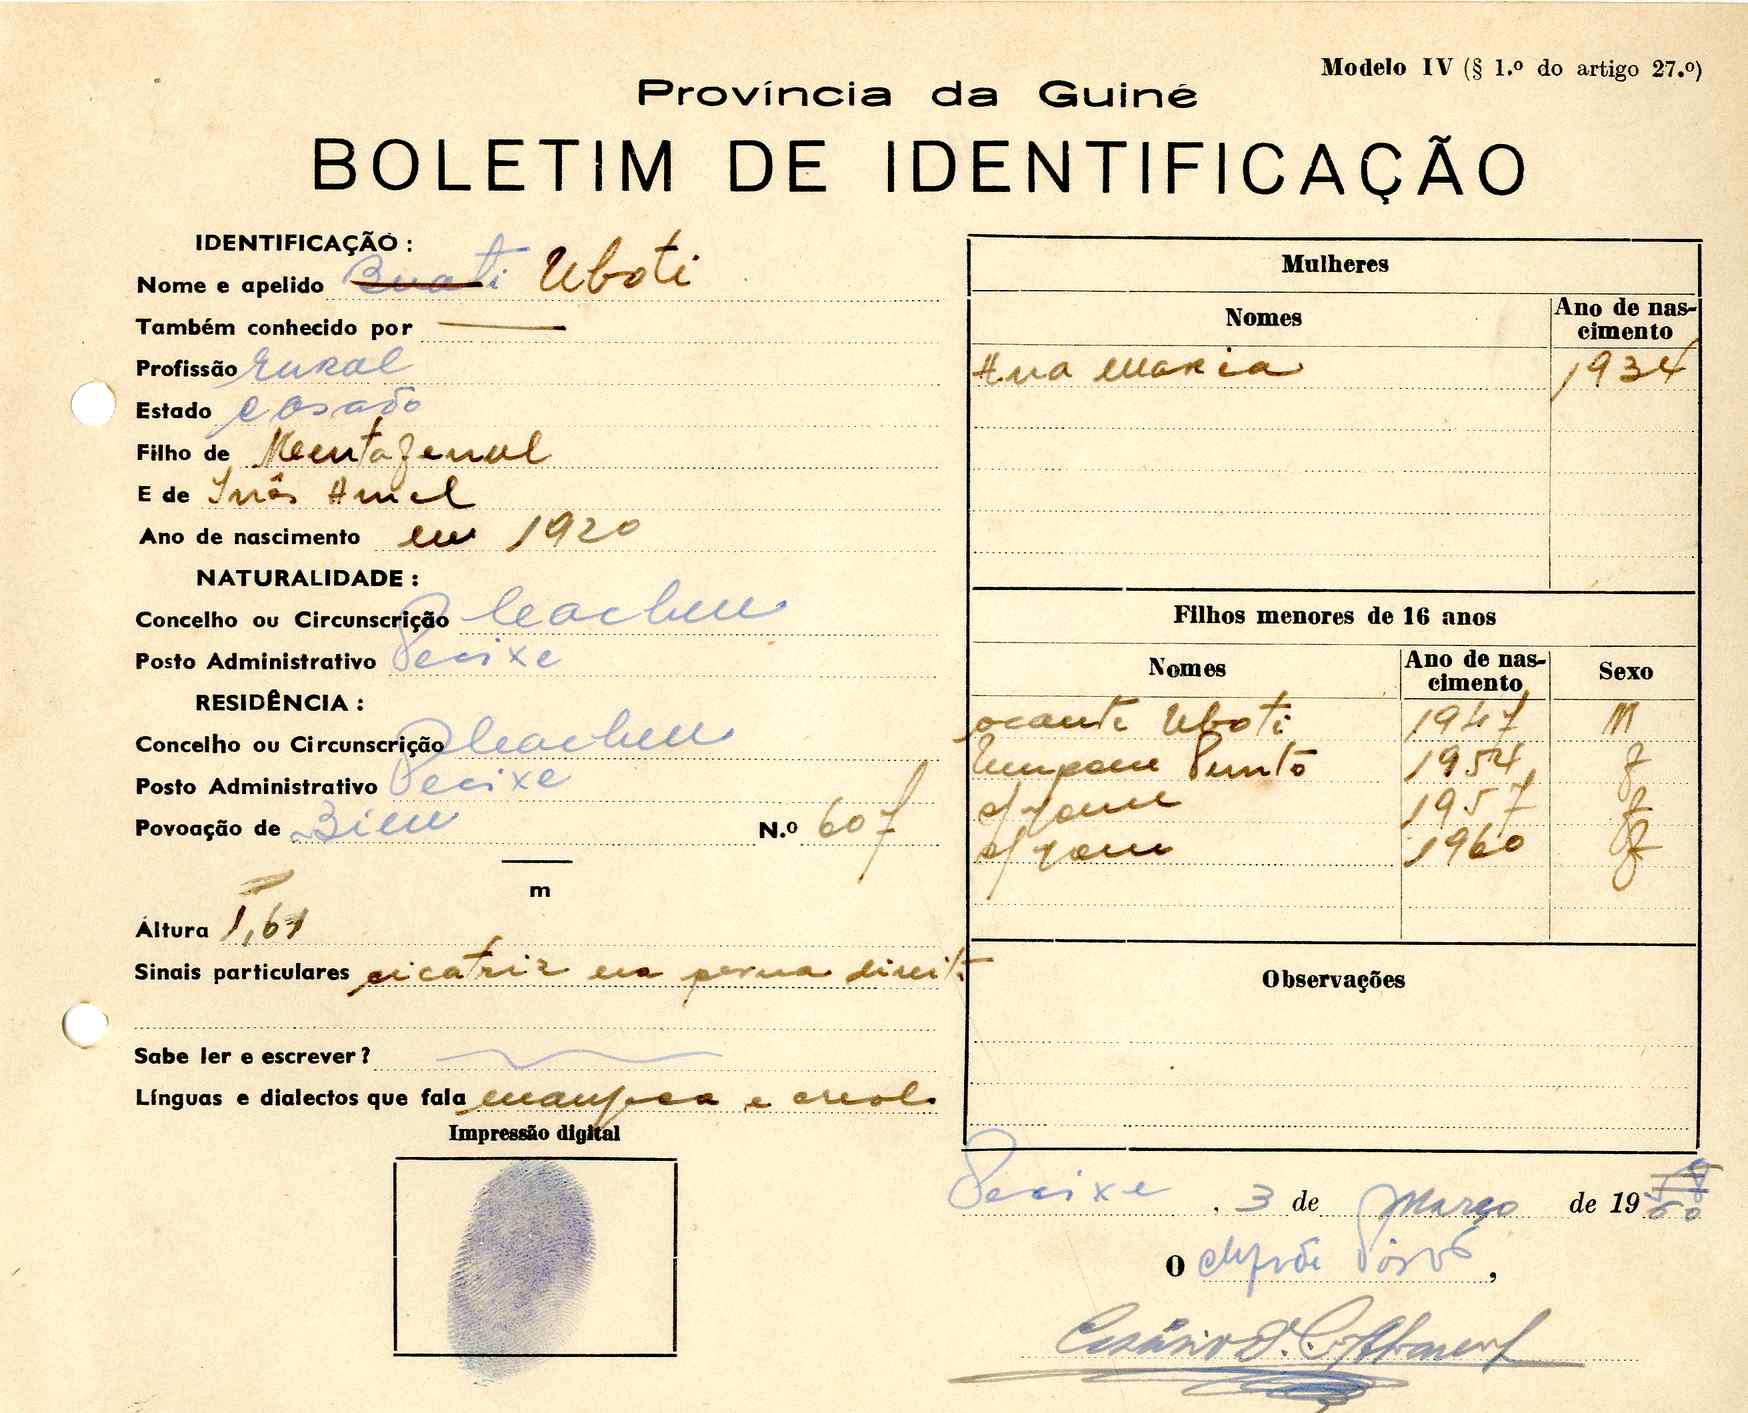 Modelo IV (§ 1.º do artigo 27.º)
Província da Guiné
BOLETIM DE IDENTIFICAÇÃO
IDENTIFICAÇÃO :
Nome e apelido Buati Uboti
Também conhecido por
Profissão Rural
Estado casado
Filho de
E de Inês
Ano de nascimento em 1920
NATURALIDADE :
Concelho ou Circunscrição Cacheu
Posto Administrativo Pecixe
RESIDÊNCIA :
Concelho ou Circunscrição Cacheu
Posto Administrativo Pecixe
Povoação de N.º 607
m
Áltura 1,61
Sinais particulares cicatriz na perna direita
Sabe ler e escrever ?
Línguas e dialectos que fala manjaca e creol
Impressão digital
Mulheres
Nomes Ano de nas-
cimento
Ana Maria 1934
Filhos menores de 16 anos
Nomes Ano de nas-
cimento Sexo
ocante Uboti 1947 M
1954 f
s/nome 1957 f
s/nome 1960 f
Observações
Pecixe, 3 de Março de 19
O chefe de Posto,